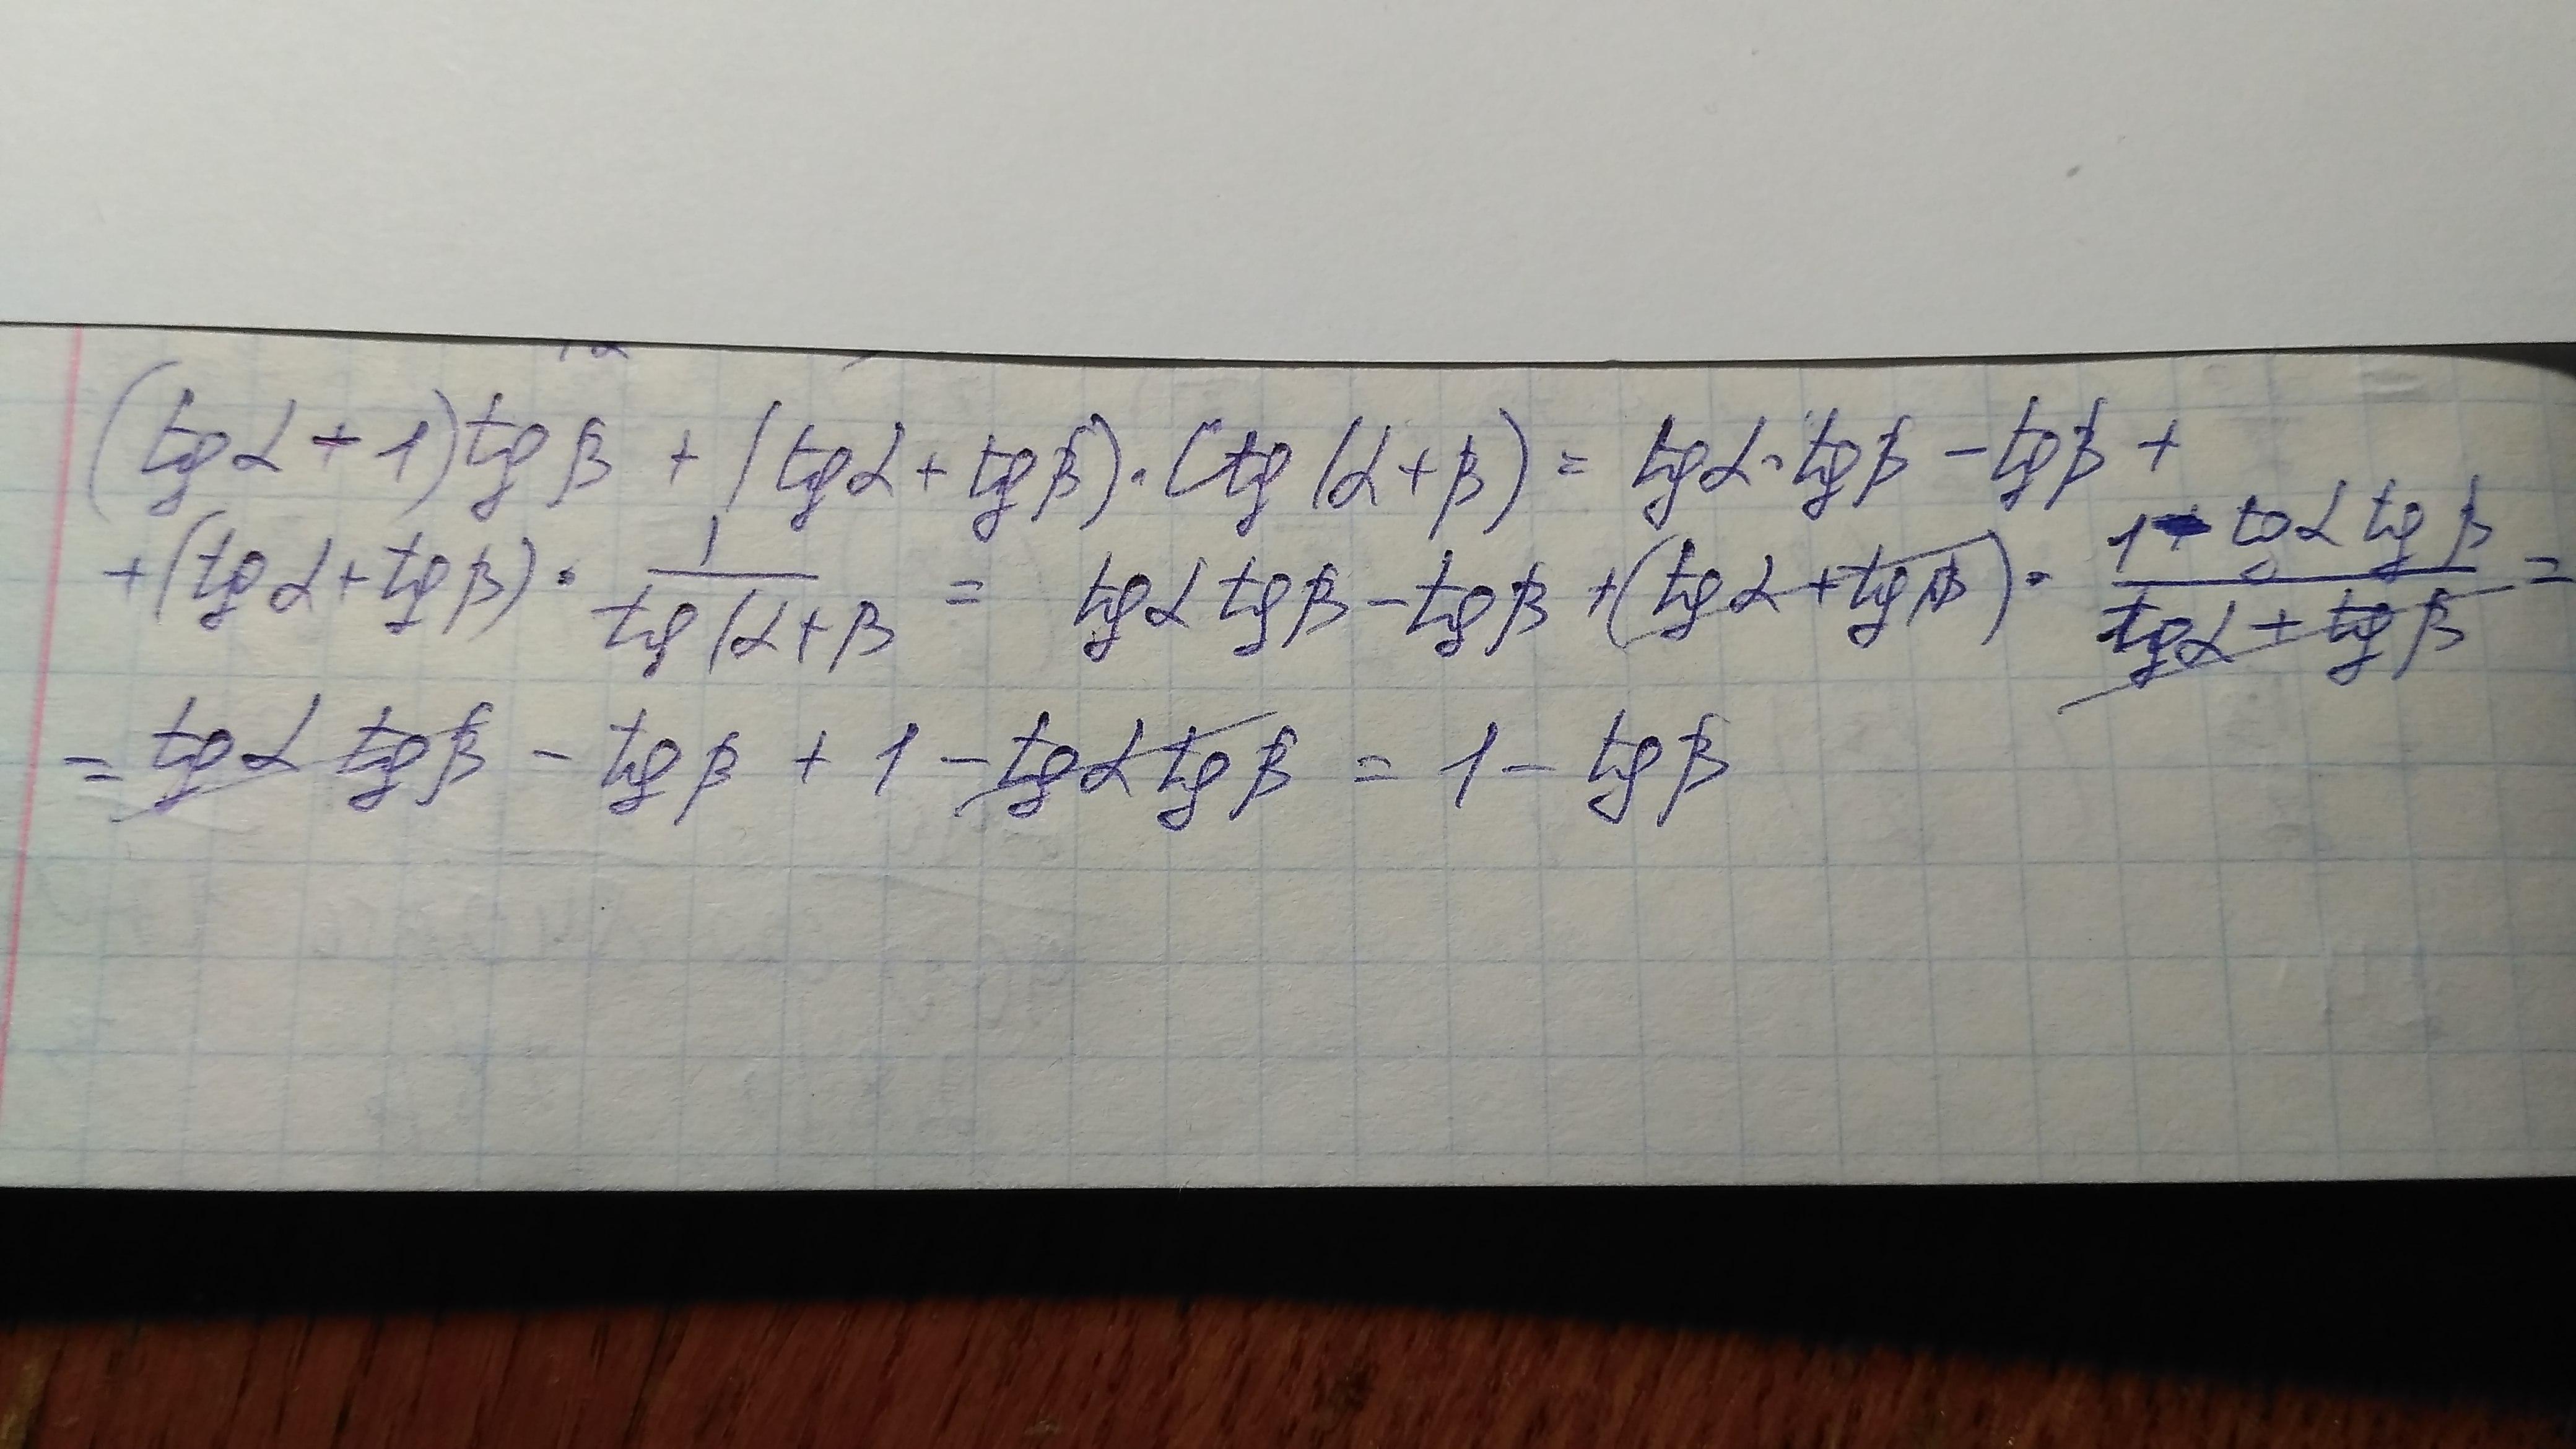 (tgα + 1)tgβ + (tgα + tgβ) · Ctg (α + β) = tgα · tgβ − tgβ +
+ (tgα + tgβ) · 1/tg(α + β = tgα tgβ − tgβ + (tgα + tgβ) · 1 - tgα tgβ/tgα + tgβ =
= tgα tgβ − tgβ + 1 − tgα tgβ = 1 − tgβ